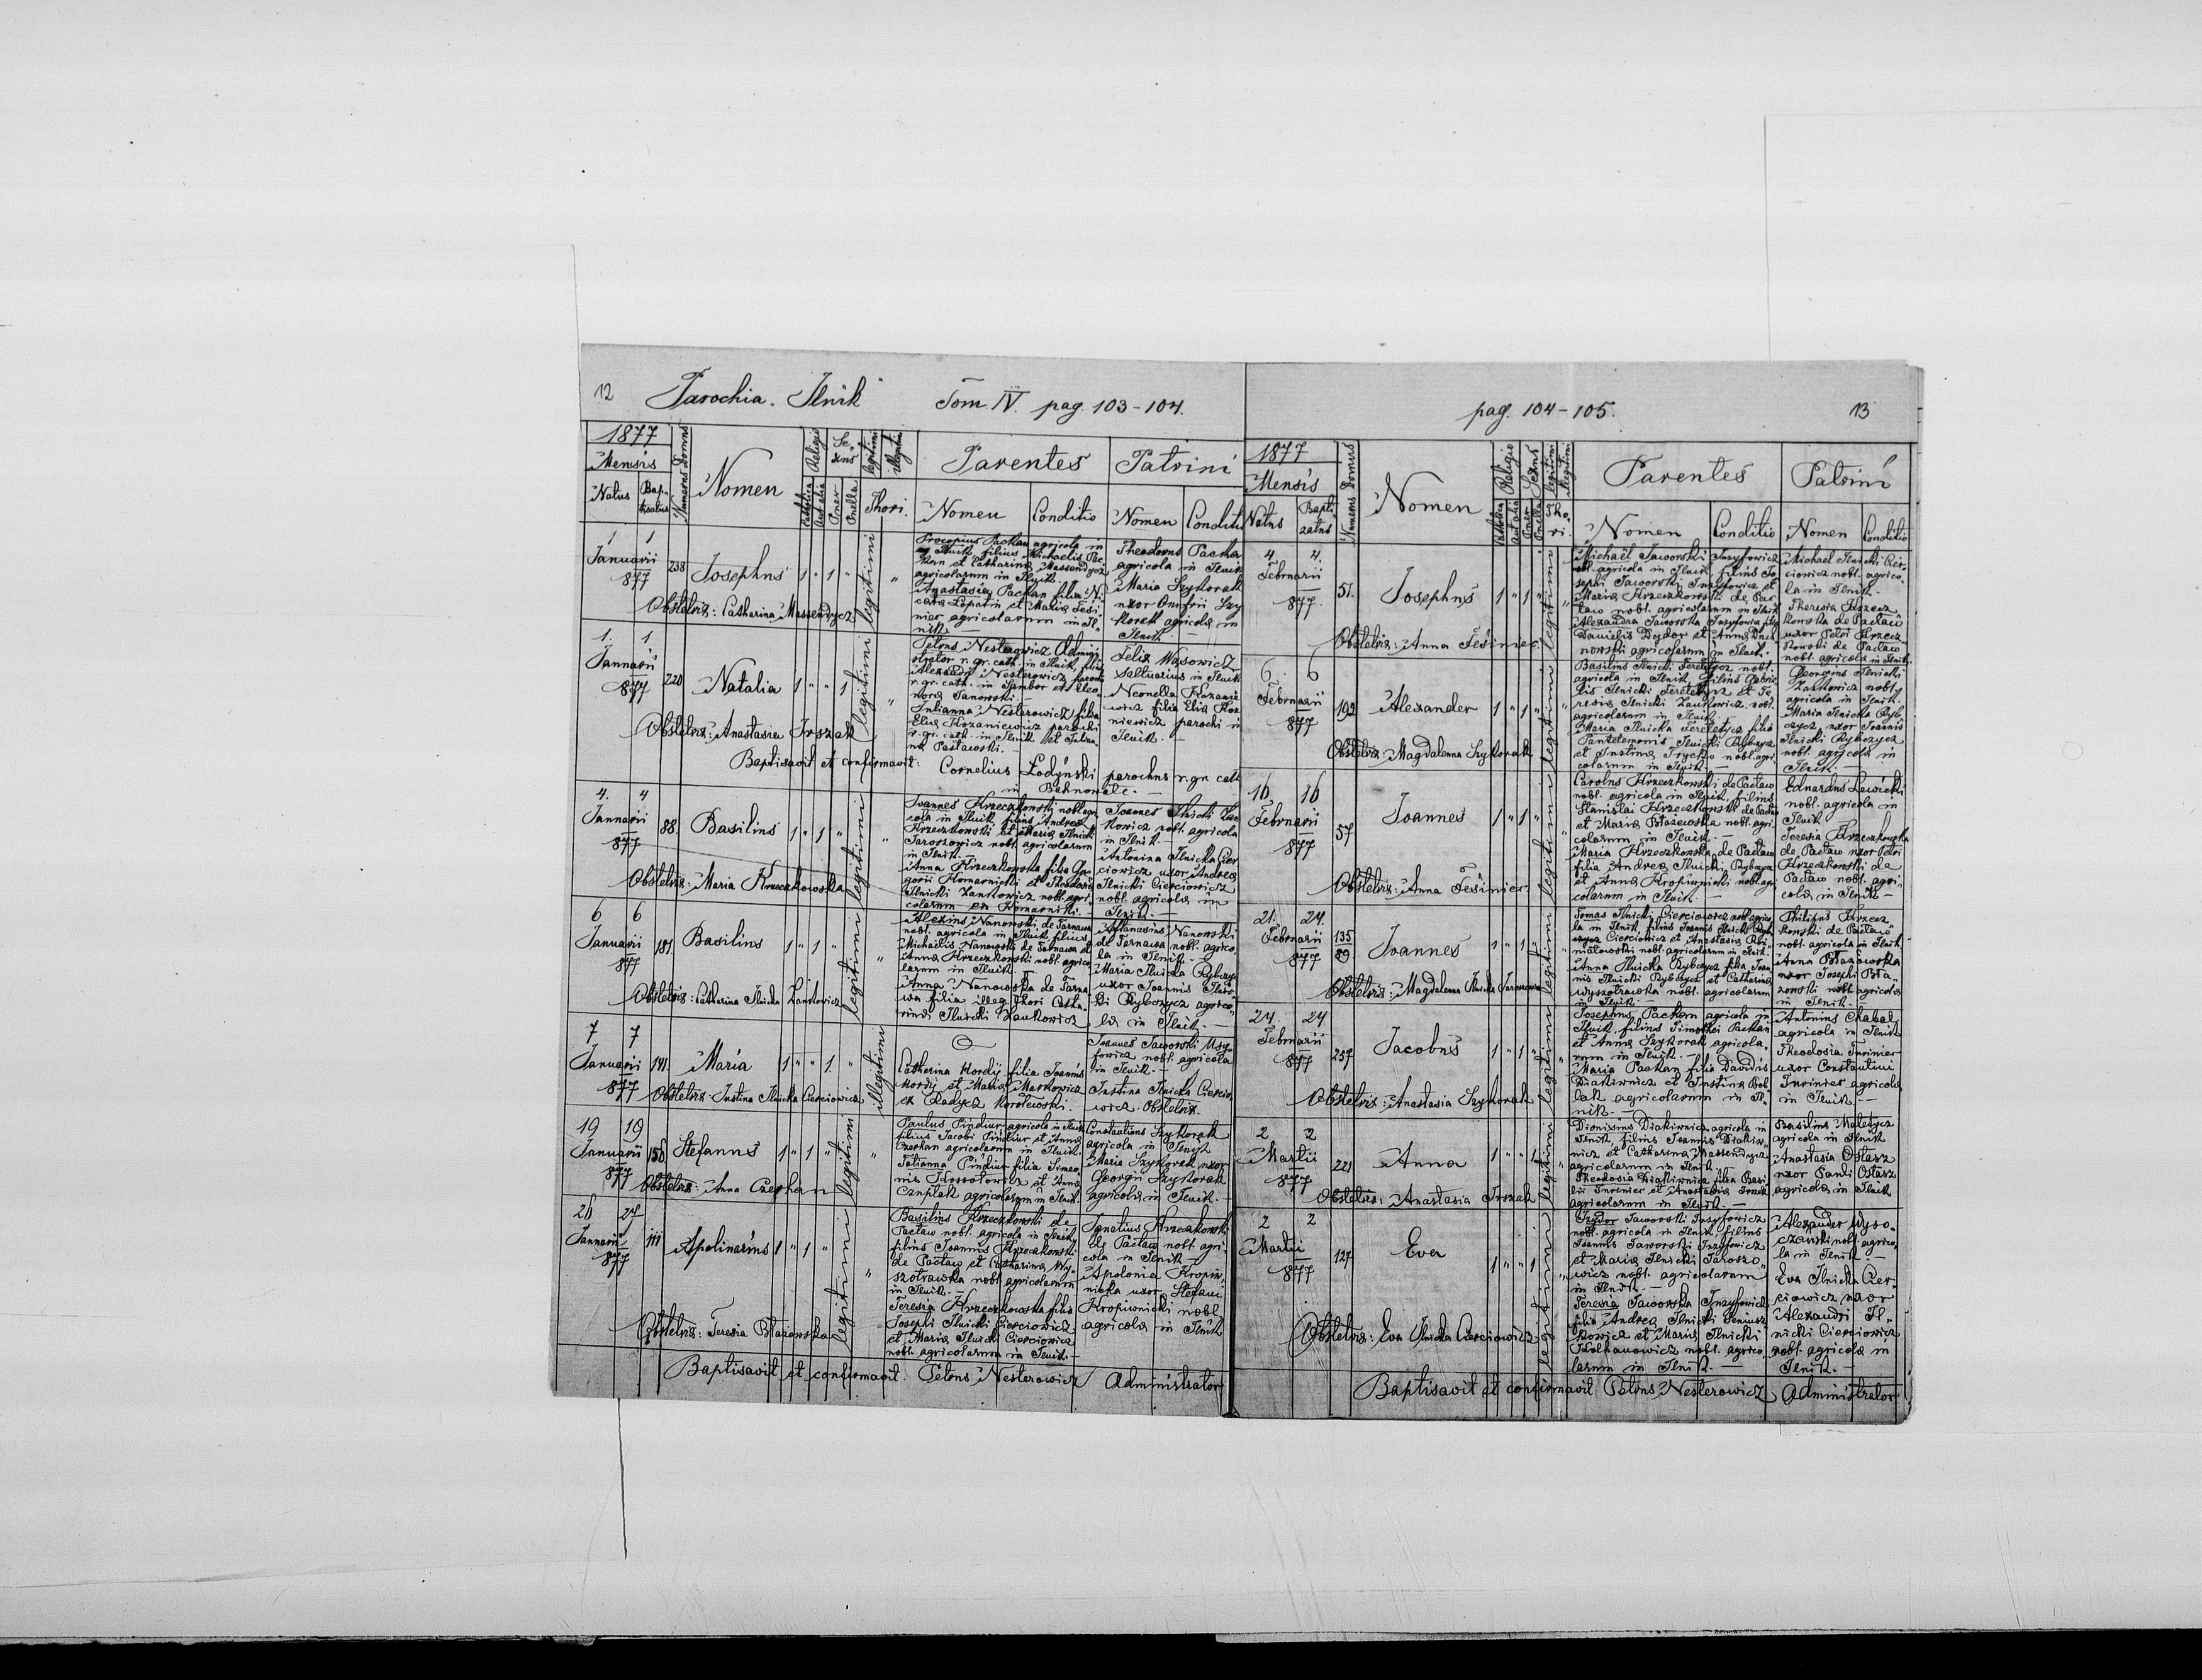 12 Parochia Ilnik Tom. IV. pag. 103-104.
1877
Mensis
Natus
Baptisatus
Numerus Domus
Nomen
Religio
Catholica
Aut alia
Sexus
Puer
Puella
legitimi
illegitimi
Thori.
Parentes
Nomen Conditio
Patrini
Nomen Conditi
1 1
Januarii
877
238
Josephus
1 " 1 "
legitimi
Procopius Packan agricola in
Ilnik filius Michaelis Pac-
kan et Catharina Massendycz
agricolarum in Ilnik.
Anastasia Packan filia Ni-
colai Lopatin et Maria Fesi-
niec agricolarum in Il-
nik
Theodorus Packa
agricola in Ilnik
Maria Szykorak
uxor Onufrii Szy
korak agricola in
Ilnik. —
Obstetrix: Catharina Massendycz
1. 1.
Januarii
877
220
Natalia
1 " " 1
legitimi
Petrus Nesterowicz Admini-
strator r. gr. cath. in Ilnik, filius
Alexandri Nesterowicz parochi
r. gr. cath. in Sambor et Eleo-
nora Janowski.
Julianna Nesterowicz filia
Elia Kozaniewicz parochi
r. gr. cath. in Ilnik et Julian-
na Pasławski. —
Felix Wąsowicz
Saltuarius in Ilnik
Neonella Kozanie
wicz filia Elia Koza
niewicz parochi in
Ilnik. —
Obstetrix: Anastasia Irszak
Baptisavit et confirmavit: Cornelius Łodyński parochus r. gr. cath
in Bahnowate. —
4. 4
Januarii
877
88.
Basilius
1 " 1 "
legitimi
Joannes Krzeczkowski nobl. agri-
cola in Ilnik filius Andrea
Krzeczkowski et Maria Ilnicki
Jaroszowicz nobl. agricolarum
in Ilnik. —
Anna Krzeczkowska filia Gre-
gorii Komarnicki et Theodosia
Ilnicki Zankowicz nobl. agri-
colarum ex Komarniki. —
Joannes Ilnicki Zan
kowicz nobl. agricola
in Ilnik. —
Antonina Ilnicka Cier
ciowicz uxor Andrea
Ilnicki Cierciowicz
nobl. agricola in
Ilnik. —
Obstetrix: Maria Krzeczkowska
6 6
Januarii
877
181.
Basilius
1 " 1 "
legitimi
Alexius Nanowski de Tarnawa
nobl. agricola in Ilnik filius
Michaelis Nanowski de Tarnawa et
Anna Krzeczkowski nobl. agrico-
larum in Ilnik
Anna Nanowska de Tarna-
wa filia illeg. thori Catha-
rina Ilnicki Zankowicz
Athanasius Nanowski
de Tarnawa nobl. agrico-
la in Ilnik. —
Maria Ilnicka Rybczycz
uxor Joannis Ilnic-
ki Rybczycz agrico-
la in Ilnik. —
Obstetrix: Catharina Ilnicka Zankowicz
7 7
Januarii
877
141.
Maria
1 " " 1. "
illegitimi
Catherina Hordij filia Joannis
Hordij et Maria Markowicz
ex Radycz Korolewski.
Joannes Jaworski Usy-
fowicz nobl. agricola
in Ilnik. —
Justina Ilnicka Ciercio-
wicz. Obstetrix.
Obstetrix: Justina Ilnicka Cierciowicz
19 19
Januarii
877
156
Stefanus
1 " 1 "
legitimi
Paulus Pindiur agricola in Ilnik
filius Jacobi Pindiur et Anna
Czerhan agricolarum in Ilnik.
Tatianna Pindiur filia Simeo-
nis Kossołowicz et Anna
Czuplak agricolarum in Ilnik.
Constantinus Szykorak
agricola in Ilnik
Maria Szykorak uxor
Georgii Szykorak
agricola in Ilnik. —
Obstetrix: Anna Czerhan
26 27
Januarii
877
111
Apolinarius
1 " 1 "
legitimi
Basilius Krzeczkowski de
Pacław nobl. agricola in Ilnik
filius Joannis Krzeczkowski
de Pacław et Catharina Wy-
szotrawka nobl. agricolarum
in Ilnik. —
Teresia Krzeczkowska filia
Josephi Ilnicki Cierciowicz
et Maria Ilnicki Cierciowicz
nobl. agricolarum in Ilnik. —
Ignatius Krzeczkowski
de Pacław nobl. agri-
cola in Ilnik —
Apolonia Kropiw-
nicka uxor Stefani
Kropiwnicki nobl.
agricola in Ilnik
Obstetrix: Teresia Błażowska
Baptisavit et confirmavit. Petrus Nesterowicz Administrator
pag. 104-105. 13
1877
Mensis
Natus
Baptizatus
Numerus Domus
Nomen
Religio
Catholica
aut alia
Sexus
Puer
Puella
legitimi
illegitimi
Thori.
Parentes
Nomen Conditio
Patrini
Nomen Conditio
4. 4.
Februarii
877.
51.
Josephus
1 " 1 "
legitimi
Michaël Jaworski Juzyfowicz
nobl. agricola in Ilnik filius Jo-
sephi Jaworski Juzyfowicz et
Maria Krzeczkowski de Pac-
ław nobl. agricolarum in Ilnik
Alexandra Jaworska Juzyfowicz filia
Danielis Dydor et Anna
nowski agricolarum in Ilnik.
Michael Ilnicki Cier-
ciowicz nobl. agrico-
la in Ilnik. —
Theresia Krzecz-
kowska de Pacław
uxor Petri Krzecz-
kowski de Pacław
nobl. agricola in Ilnik.
Obstetrix: Anna Fesiniec.
6. 6
Februarii
877
192
Alexander
1 " 1 "
legitimi
Basilius Ilnicki Tereletycz nobl.
agricola in Ilnik filius Gabrie-
lis Ilnicki Tereletycz et Te-
resia Ilnicki Zankowicz nobl.
agricolarum in Ilnik.
Maria Ilnicka Tereletycz filia
Pantelemonis Ilnicki Rybczycz
et Justina nobl. agri-
colarum in Ilnik. —
Georgius Ilnicki
Zankowicz nobl.
agricola in Ilnik.
Maria Ilnicka Ryb-
czycz uxor Joannis
Ilnicki Rybczycz
nobl. agricola in
Ilnik. —
Obstetrix: Magdalenna Szykorak
16 16
Februarii
877
57
Joannes
1 " 1 "
legitimi
Carolus Krzeczkowski de Pacław
nobl. agricola in Ilnik, filius
Stanislai Krzeczkowski de Pacław
et Maria Błażewska nobl. agri-
colarum in Ilnik. —
Maria Krzeczkowska de Pacław
filia Andrea Ilnicki Rybczycz
et Anna Kropiwnicki nobl. agri-
colarum in Ilnik. —
Eduardus Lewicki
nobl. agricola in
Ilnik
Teresia Krzeczkowska
de Pacław uxor Petri
Krzeczkowski de
Pacław nobl. agri-
cola in Ilnik —
Obstetrix: Anna Fesiniec.
21. 24.
Februarii
877
135
89
Joannes
1 " 1 "
legitimi
Tomas Ilnicki Cierciowicz nobl. agrico-
la in Ilnik, filius Joannis Ilnicki
Cierciowicz et Anastasia
nobl. agricolarum in Ilnik.
Anna Ilnicka Rybczycz filia Joan-
nis Ilnicki Rybczycz et Catharina
Wyszotrawka nobl. agricolarum
in Ilnik. —
Philipus Krzecz-
kowski de Pacław
nobl. agricola in Ilnik
Anna Błażowska
uxor Josephi Bła-
żowski nobl. agricola
in Ilnik. —
Obstetrix: Magdalenna Ilnicka
24. 24
Februarii
877
257
Jacobus
1 " 1 "
legitimi
Josephus Packan agricola in
Ilnik filius Timothei Packan
et Anna Szykorak agricola-
rum in Ilnik. —
Maria Packan filia Davidis
Diakiwnicz et Justina Bob-
lak agricolarum in Il-
nik. —
Antonius Chabal
agricola in Ilnik
Theodosia Juriniec
uxor Constantini
Juriniec agricola
in Ilnik. —
Obstetrix: Anastasia Szykorak
2 2
Martii
877
221
Anna
1 " " 1
legitimi
Dionisius Diakiwnicz agricola in
Ilnik, filius Joannis Diakiw-
nicz et Catharina Massendycz
agricolarum in Ilnik. —
Theodosia Diakiwnicz filia Basi-
lii Juriniec et Anastasia Irszak
agricolarum in Ilnik. —
Basilius Maletycz
agricola in Ilnik
Anastasia Ostasz
uxor Pauli Ostasz
agricola in Ilnik
Obstetrix: Anastasia Irszak
2 2
Martii
877
127
Eva
1 " " 1
legitimi
Izydor Jaworski Juzyfowicz
nobl. agricola in Ilnik, filius
Joannis Jaworski Juzyfowicz
et Maria Ilnicki Jaroszo-
wicz nobl. agricolarum
in Ilnik. —
Teresia Jaworska Juzyfowicz
filia Andrea Ilnicki
et Maria Ilnicki
nobl. agrico-
larum in Ilnik. —
Alexander Wyso-
czański nobl. agrico-
la in Ilnik —
Eva Ilnicka Cier-
ciowicz uxor
Alexandri Il-
nicki Cierciowicz
nobl. agricola in
Ilnik. —
Obstetrix: Eva Ilnicka Cierciowicz
Baptisavit et confirmavit Petrus Nesterowicz Administrator